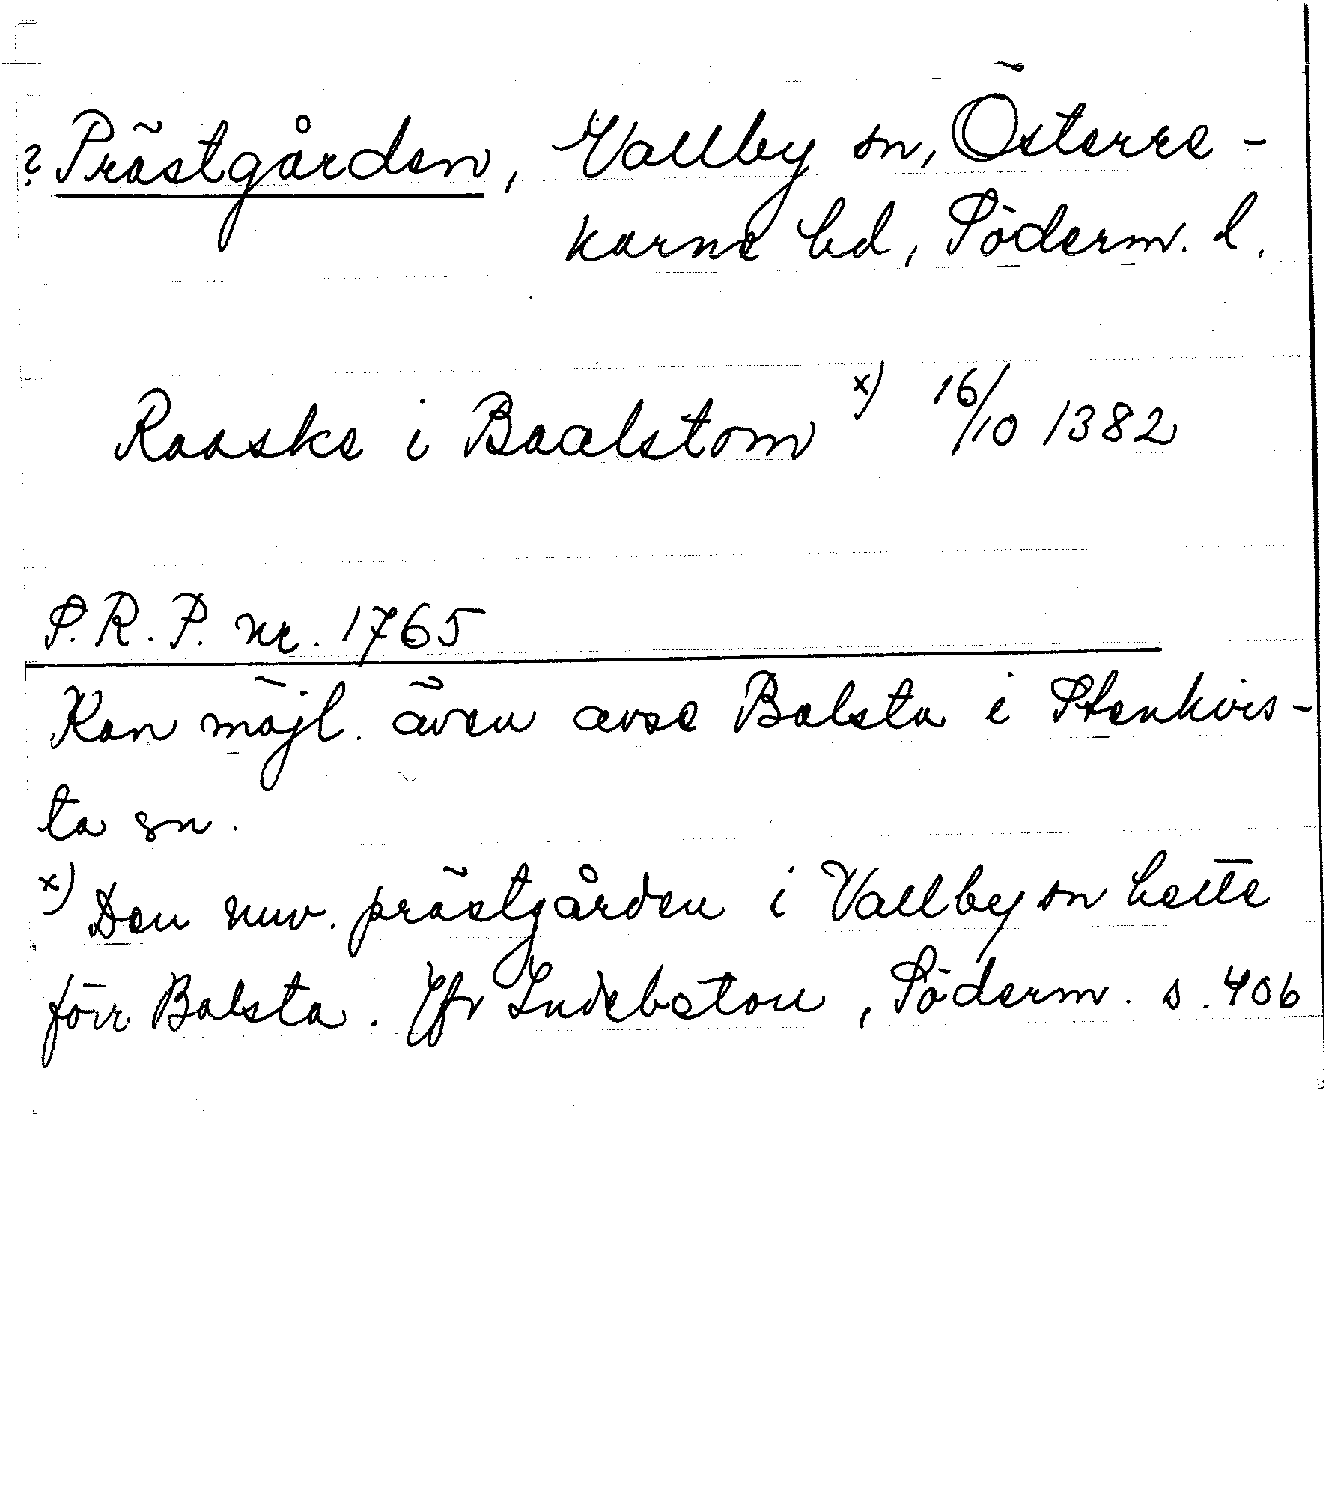 ? Prästgården, Vallby sn, Österre-
karne hd, Söderm. l.
Raaske i Baalstom x) 16/10 1382
S.R.P. nr. 1765
Kan möjl. även avse Balsta i Stenkvis-
ta sn.
x) Den nuv. prästgården i Vallby sn hette
förr Balsta. Jfr Indebetou, Söderm. s. 406